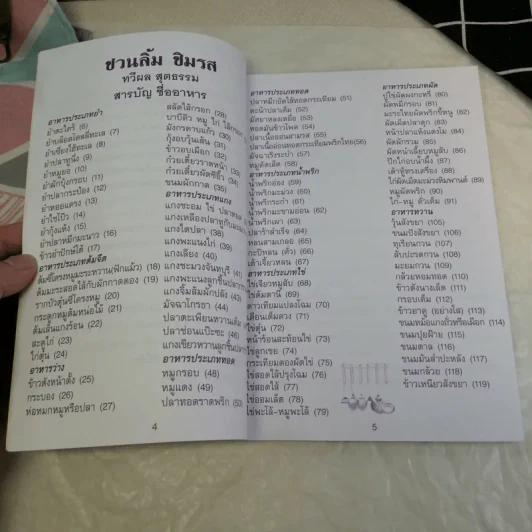 ชวนลิ้ม ชิมรส
ทวีผล สุตธรรม
สารบัญ ชื่ออาหาร
อาหารประเภทยำ
ยำตะไคร้ (6)
ยำเซี่ยงไฮ้ทะเล (8)
ยำปลาทูนึ่ง (9)
ยำหมูยอ (10)
ยำผักบุ้งกรอบ (11)
ยำปลากระป๋อง (12)
ยำหอยแครง (13)
ยำไข่โป๊ว (14)
ยำกุ้งแห้ง (15)
ยำปลาหมึกมะนาว (16)
ข้าวยำปักษ์ใต้ (17)
อาหารประเภทต้มจืด
ต้มจี้โครงหมูมะระหวาน(ฟักแม้ว) (18)
ต้มมะระสอดไส้กับผักกาดดอง (19)
รากบัวตุ๋นซี่โครงหมู (20)
กระดูกหมูต้มหน่อไม้ (21)
ต้มเส้นแกงร้อน (22)
สะตูไก่ (23)
ไก่ตุ๋น (24)
อาหารว่าง
ข้าวตังหน้าตั้ง (25)
กระบอง (26)
ห่อหมกหมูหรือปลา (27)
สลัดไส้กรอก (28)
บาบีคิว หมู ไก่ ไส้กรอก
มังกรคาบแก้ว (30)
กุ้งอบวุ้นเส้น (31)
ข้าวอบเผือก (32)
ก๋วยเตี๋ยวราดหน้า (33)
ก๋วยเตี๋ยวผัดซีอิ๊ว (34)
ขนมผักกาด (35)
อาหารประเภทแกง
แกงชะอม ไข่ ปลาทอด
แกงไตปลา (38)
แกงพะแนงไก่ (39)
แกงเลียง (40)
แกงมะขามวงจันทบุรี (41)
แกงจืดลูกชิ้นปลา (43)
มัจฉาโกรธา (44)
ปลาตะเพียนหวานเค็ม
ปลาช่อนแป๊ะซะ (46)
แกงเขียวหวานลูกชิ้นปลา
อาหารประเภททอด
หมูกรอบ (48)
หมูแดง (49)
ปลาทอดราดพริก (50)
4
อาหารประเภททอด
ปลาหมึกยัดไส้ทอดกระเทียม (51)
คะน้าปลาเค็ม (52)
มัสยาหลงเหยื่อ (53)
ทอดมันข้าวโพด (54)
ปลาเนื้ออ่อนสามรส (55)
ปลาเนื้ออ่อนทอดกระเทียมพริกไทย(56)
มัจฉาริงระบำ (57)
หมูคัตเล็ต (58)
อาหารประเภทน้ำพริก
น้ำพริกอ่อง (59)
น้ำพริกมะม่วง (60)
น้ำพริกระกำ (61)
น้ำพริกมะขามอ่อน (62)
น้ำพริกเผา (63)
ปลาร้าสำเร็จ (64)
หลนสามเกลอ (65)
กะปิหลน (คั่ว) (66)
เต้าเจี้ยวหลน (67)
อาหารประเภทไข่
ไข่เจียวหมูสับ (68)
ไข่ต้มดานี้ (69)
ดาวเทียมแปลงโฉม (70)
เดือนเต็มดวง (71)
ไข่ตุ๋น (72)
หน้าร้อนสะท้อนไข่ (73)
ไข่ลูกเขย (74)
กระเทียมดองผัดไข่ (75)
ไข่สอดไส้ปรุงโฉม (76)
ไข่สอดไส้ (77)
ไข่ออมเล็ต (78)
ไข่พะโล้-หมูพะโล้ (79)
อาหารประเภทผัด
ปูไข่ผัดผงกะหรี่ (80)
ผัดหมี่กรอบ (81)
มะระไทยผัดพริกขี้หนู (82)
ผัดเผ็ดปลาดุก (83)
หน้าปลาแห้งแตงโม (84)
ผัดผักรวม (85)
ผัดหน้าเลี้ยบหมูสับ (86)
ปีกไก่อบน้ำผึ้ง (87)
เต้าหู้ทรงเครื่อง (88)
ไก่ผัดเม็ดมะม่วงหิมพานต์ (89)
หมูผัดพริก (90)
ไก่-หมู คั่วเค็ม (91)
อาหารหวาน
วุ้นสังขยา (105)
ขนมปังสังขยา (106)
ทุเรียนกวน (107)
สับปะรดกวน (108)
มะยมกวน (109)
กล้วยหอมทอด (110)
ข้าวตังนางเล็ด (111)
กรอบเค็ม (112)
ข้าวยาคู (อย่างใส) (113)
ขนมหม้อแกงถั่วหรือเผือก (114)
ขนมปุยฝ้าย (115)
ขนมตาล (116)
ขนมมันสำปะหลัง (117)
ขนมกล้วย (118)
ข้าวเหนียวสังขยา (119)
5